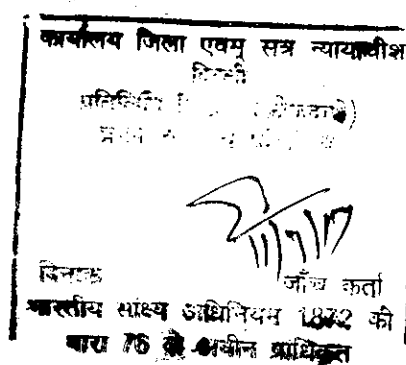 कार्यालय जिला एवम् सत्र न्यायाधीश
दिल्ली
प्रतिलिपि
11/7/17
दिनांक जाँच कर्ता
भारतीय सांक्ष्य अधिनियम 1872 की
धारा 76 के अधीन प्राधिकृत